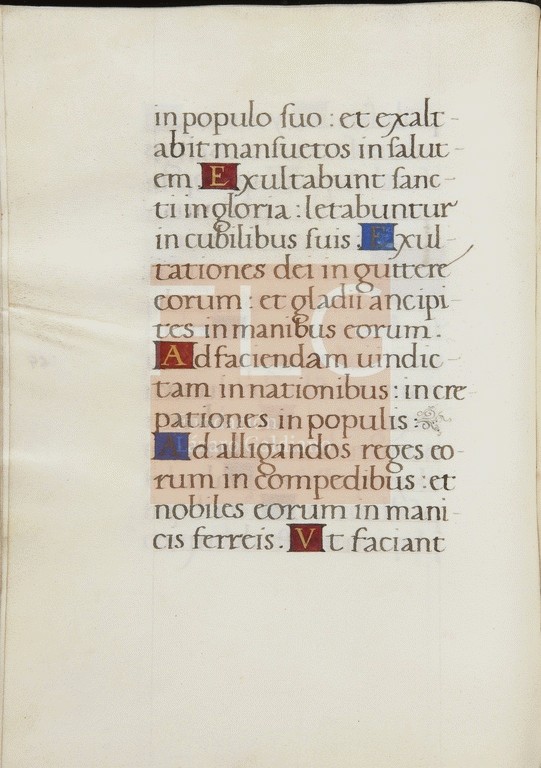 in populo suo : et exalt-
abit mansuetos in salut-
em. Exultabunt sanc-
ti in gloria : letabuntur
in cubilibus suis. Exul-
tationes dei in gutture
eorum : et gladii ancipi-
tes in manibus eorum.
Ad faciendam uindic-
tam in nationibus : incre-
pationes in populis :
Ad alligandos reges eo-
rum in compedibus : et
nobiles eorum in mani-
cis ferreis. Vt faciant